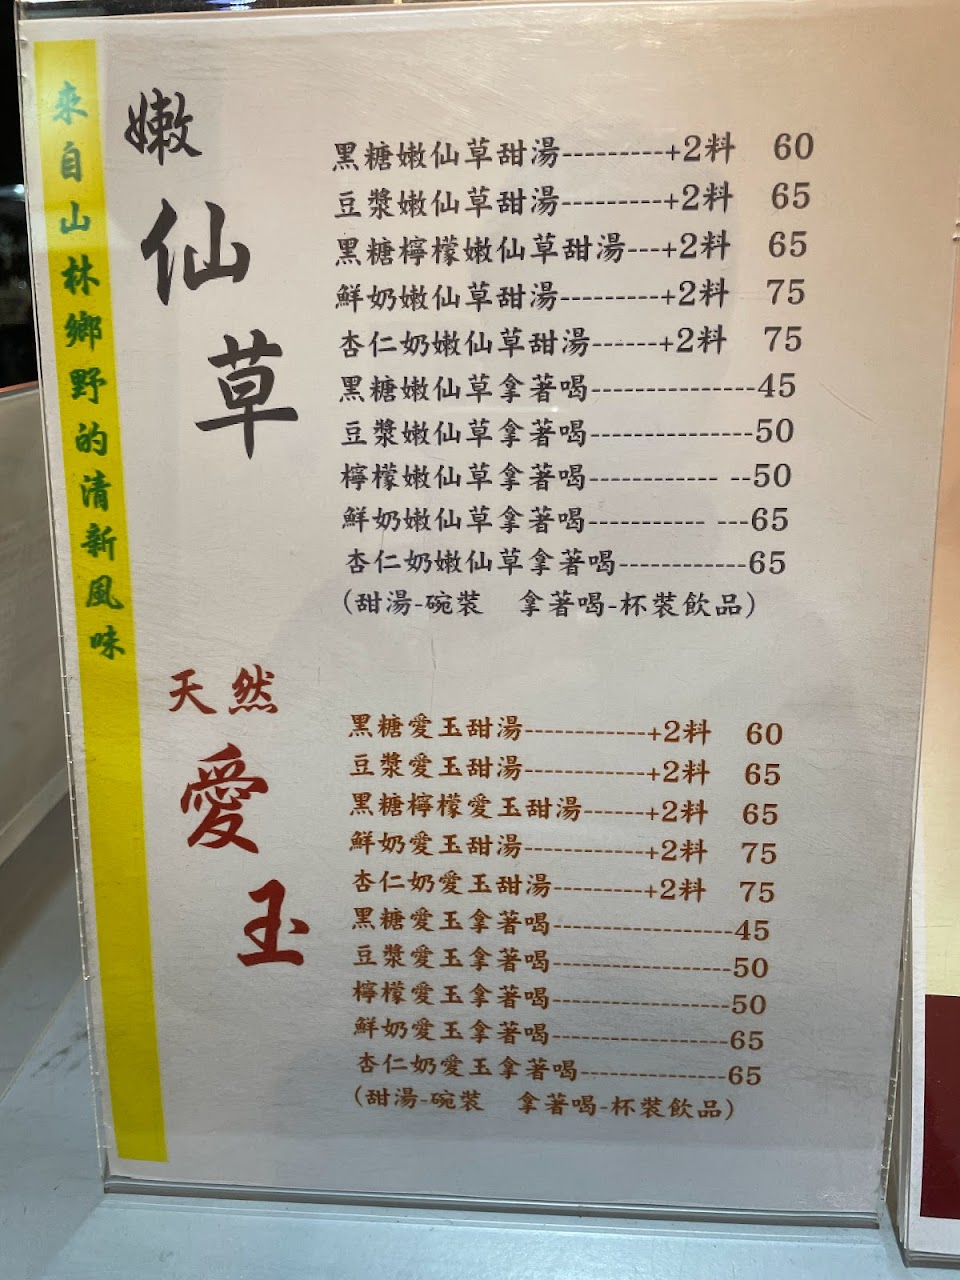 來自山林鄉野的清新風味
嫩仙草
黑糖嫩仙草甜湯---------+2料 60
豆漿嫩仙草甜湯---------+2料 65
黑糖檸檬嫩仙草甜湯---+2料 65
鮮奶嫩仙草甜湯---------+2料 75
杏仁奶嫩仙草甜湯------+2料 75
黑糖嫩仙草拿著喝---------------45
豆漿嫩仙草拿著喝---------------50
檸檬嫩仙草拿著喝------------ --50
鮮奶嫩仙草拿著喝----------- ---65
杏仁奶嫩仙草拿著喝------------65
(甜湯-碗裝 拿著喝-杯裝飲品)
天然
愛玉
黑糖愛玉甜湯------------+2料 60
豆漿愛玉甜湯------------+2料 65
黑糖檸檬愛玉甜湯------+2料 65
鮮奶愛玉甜湯------------+2料 75
杏仁奶愛玉甜湯---------+2料 75
黑糖愛玉拿著喝------------------45
豆漿愛玉拿著喝------------------50
檸檬愛玉拿著喝------------------50
鮮奶愛玉拿著喝------------------65
杏仁奶愛玉拿著喝---------------65
(甜湯-碗裝 拿著喝-杯裝飲品)